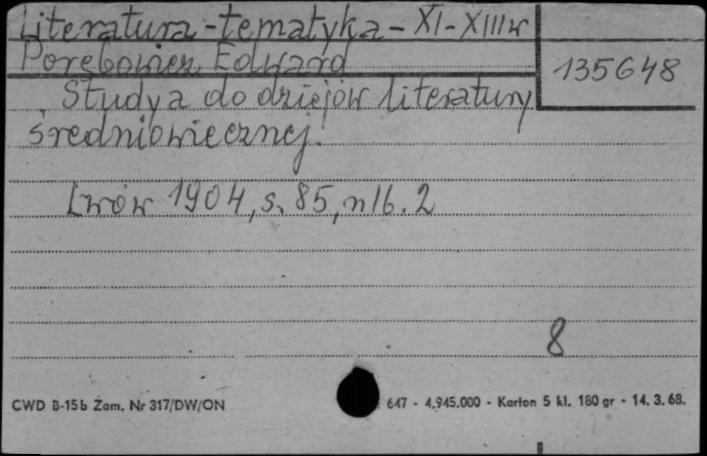 Literatura - tematyka - XI - XIII w
Porębowicz Edward
135648
Studya do dziejów literatury
średniowiecznej.
Lwów 1904, s. 85, nlb. 2
8
CWD B-15b Zam. Nr 317/DW/ON
647 - 4.945.000 - Karton 5 kl. 180 gr - 14. 3. 68.